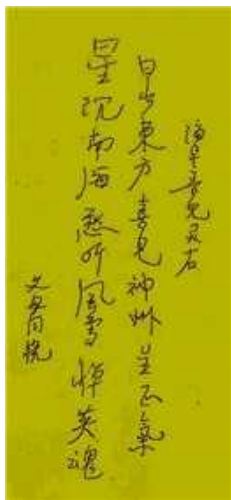 海星吾兄灵右
日出東方喜見神州呈正氣
星沉南海愁听風雪悼英魂
文敬挽